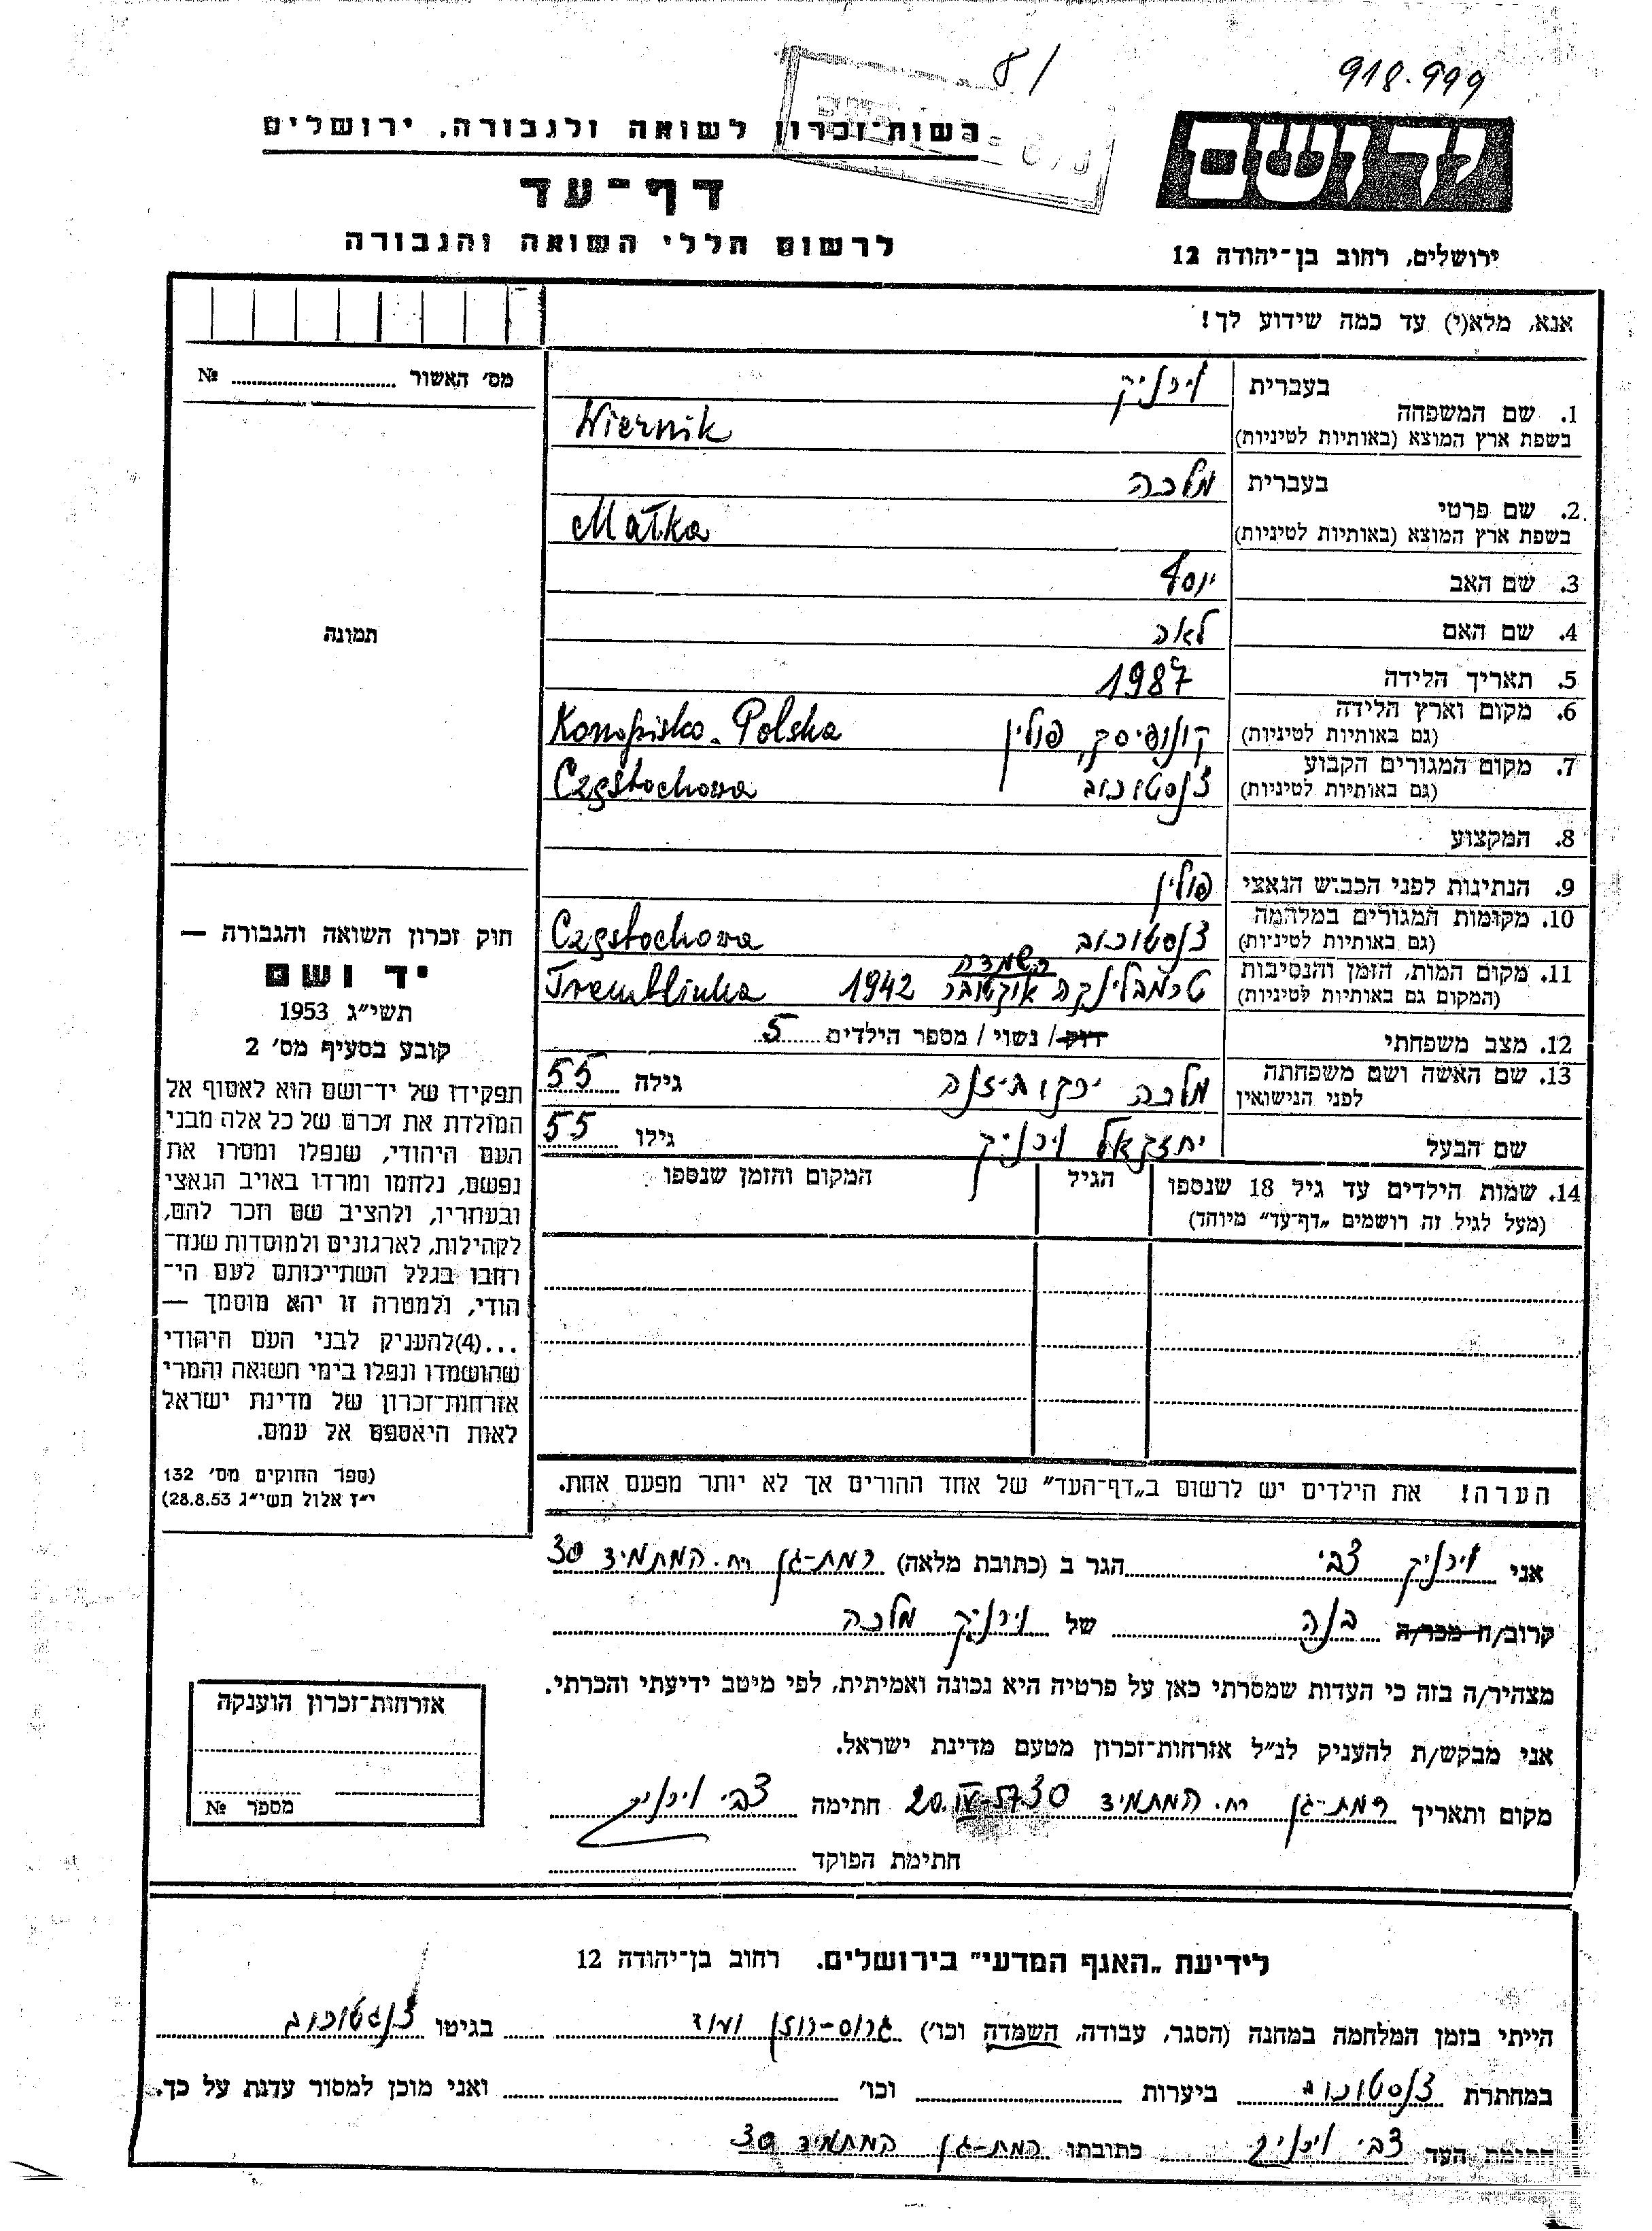 918.999
81
רשות־זכרון לשואה ולגבורה, ירושלים
יד ושם
דף־עד
לרשום חללי השואה והגבורה
ירושלים, רחוב בן־יהודה 12
אנא, מלא(י) עד כמה שידוע לך!
מס׳ האשור ........ №
תמונה
בעברית וירניק
1. שם המשפחה
בשפת ארץ המוצא (באותיות לטיניות) Wiernik
בעברית מלכה
2. שם פרטי
בשפת ארץ המוצא (באותיות לטיניות) Małka
3. שם האב יוסף
4. שם האם לאה
5. תאריך הלידה 1987
6. מקום וארץ הלידה
(גם באותיות לטיניות) קונופיסק, פולין Konopisko. Polska
7. מקום המגורים הקבוע
(גם באותיות לטיניות) צ'נסטוכוב Częstochowa
8. המקצוע
9. הנתינות לפני הכבוש הנאצי פולין
10. מקומות המגורים במלחמה
(גם באותיות לטיניות) צ'נסטוכוב Częstochowa
11. מקום המות, הזמן והנסיבות השמדה
(המקום גם באותיות לטיניות) טרמבלינקה אוקטובר 1942 Tremblinka
12. מצב משפחתי רווק / נשוי / מספר הילדים 5
13. שם האשה ושם משפחתה
לפני הנישואין מלכה גילה 55
שם הבעל יחזקאל וירניק גילו 55
14. שמות הילדים עד גיל 18 שנספו הגיל המקום והזמן שנספו
(מעל לגיל זה רושמים „דף־עד” מיוחד)
הערה! את הילדים יש לרשום ב„דף־העד” של אחד ההורים אך לא יותר מפעם אחת.
חוק זכרון השואה והגבורה —
יד ושם
תשי״ג 1953
קובע בסעיף מס׳ 2
תפקידו של יד־ושם הוא לאסוף אל
המולדת את זכרם של כל אלה מבני
העם היהודי, שנפלו ומסרו את
נפשם, נלחמו ומרדו באויב הנאצי
ובעוזריו, ולהציב שם וזכר להם,
לקהילות, לארגונים ולמוסדות שנח־
רחבו בגלל השתייכותם לעם הי־
הודי, ולמטרה זו יהא מוסמך —
...(4)להעניק לבני העם היהודי
שהושמדו ונפלו בימי השואה והמרי
אזרחות־זכרון של מדינת ישראל
לאות היאספם אל עמם.
(ספר החוקים מס׳ 132
י״ז אלול תשי״ג 28.8.53)
אני וירניק צבי הגר ב (כתובת מלאה) רמת-גן רח. המתמיד 30
קרוב/ה מכר/ה בנה של וירניק מלכה
מצהיר/ה בזה כי העדות שמסרתי כאן על פרטיה היא נכונה ואמיתית, לפי מיטב ידיעתי והכרתי.
אני מבקש/ת להעניק לנ״ל אזרחות־זכרון מטעם מדינת ישראל.
מקום ותאריך רמת-גן רח. המתמיד 30 חתימה צבי וירניק
חתימת הפוקד
אזרחות־זכרון הוענקה
מספר №
לידיעת „האגף המדעי” בירושלים. רחוב בן־יהודה 12
הייתי בזמן המלחמה במחנה (הסגר, עבודה, השמדה וכו׳) גרוס-רוזן ועוד בגיטו צ'נסטוכוב
במחתרת צ'נסטוכוב ביערות וכו׳ ואני מוכן למסור עדות על כך.
חתימת העד צבי וירניק כתובתו רמת-גן המתמיד 30